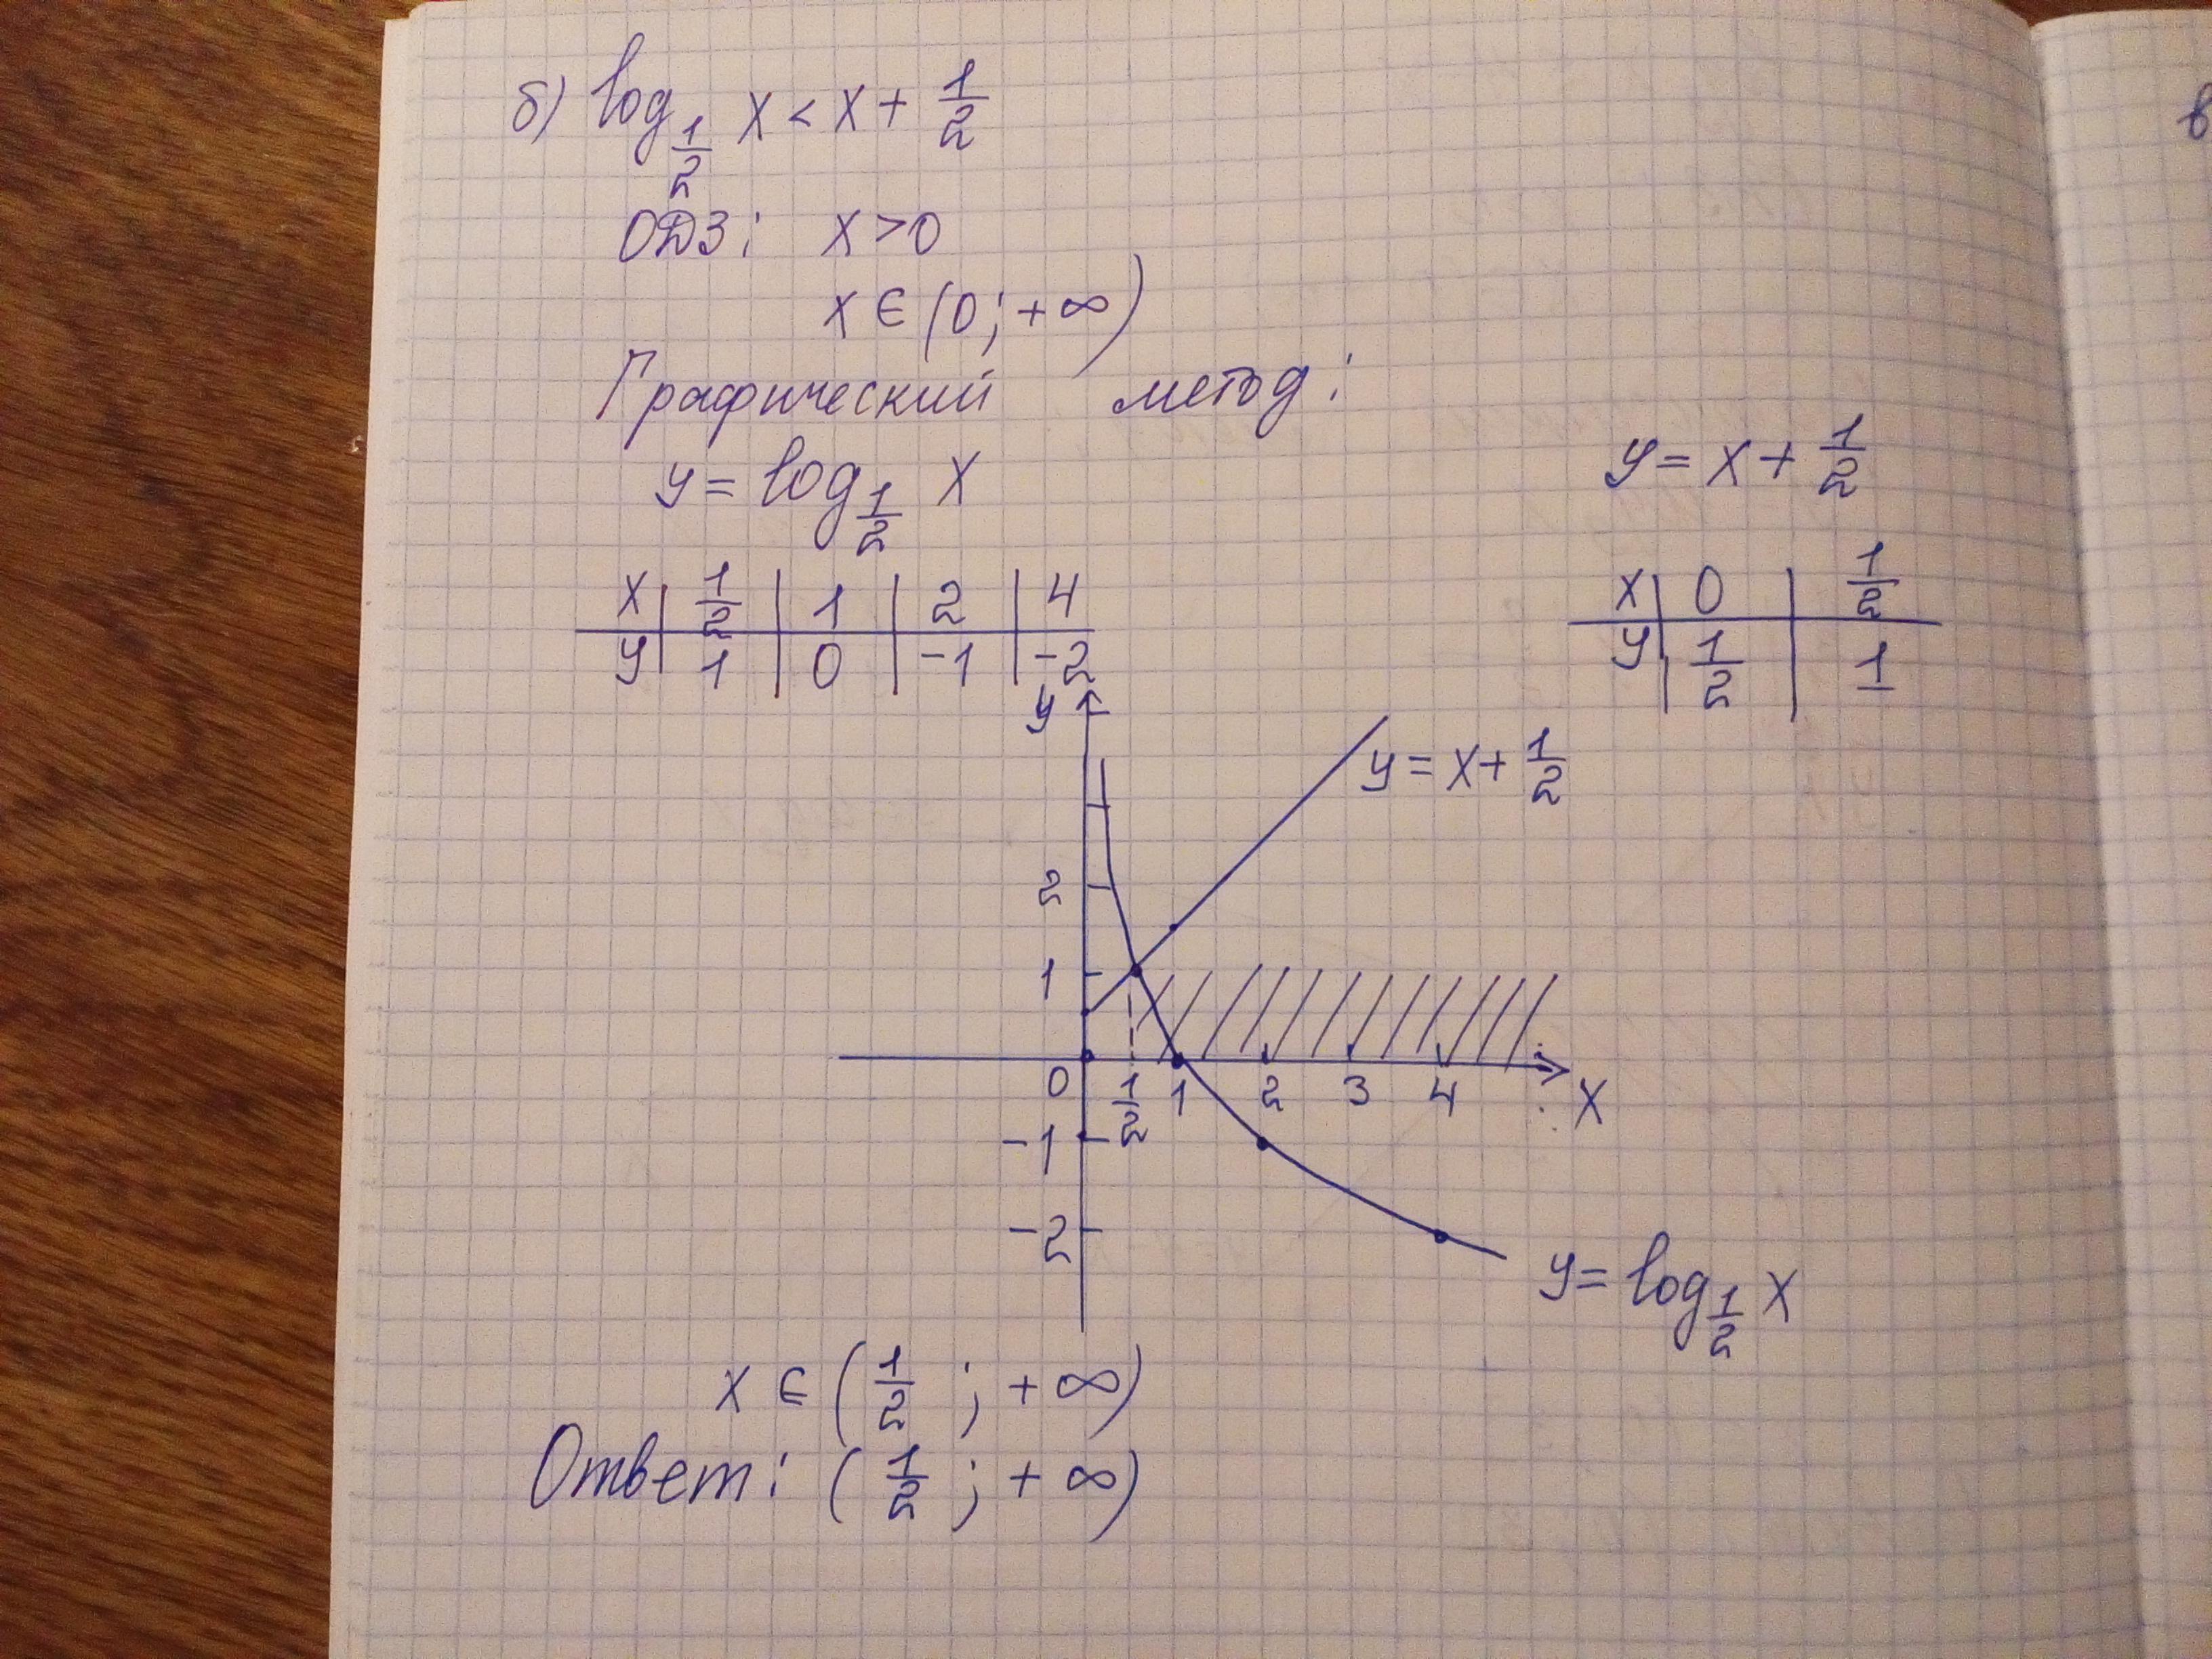 б) log_{1/2} x < x + 1/2
ОДЗ: x > 0
x ∈ (0; +∞)
Графический метод:
y = log_{1/2} x
y = x + 1/2
x | 1/2 | 1 | 2 | 4
y | 1 | 0 | -1 | -2
x | 0 | 1/2
y | 1/2 | 1
y
y = x + 1/2
2
1
0 1/2 1 2 3 4 x
-1
-2
y = log_{1/2} x
x ∈ (1/2; +∞)
Ответ: (1/2; +∞)
в